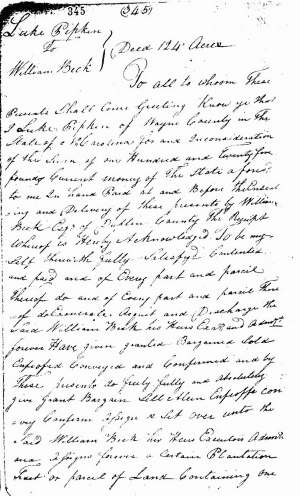 345 (345)
Luke Pipkin
To } Deed 124 Acres
William Beck
To all to whom These
Presents Shall Come Greeting Know ye that
I Luke Pipkin of Wayne County in the
State of N Carolina for and Inconsideration
of the Sum of one Hundred and Twenty five
pounds Current money of the State afores
to me In hand Paid at and Before the Enseal
ing and Delivery of these Presents by William
Beck Esqr of Duplin County the Receipt
Whereof is Hereby Acknowledged To be my
Self therewith fully Satisfyd Contented
and paid and of Every part and parcel
thereof do and of Every part and parcel there
of do Exonerate Acquit and Discharge the
Said William Beck his Heirs Exers and Admrs
forever Have given granted Bargained Sold
Enfeofed Conveyed and Confirmed and by
These Presents do freely fully and absolutely
give Grant Bargain Sell Alien Enfeoffe con
vey Confirm Assign & Set over unto the
Said William Beck his Heirs Executors Admin
Assigns forever a Certain Plantation
Tract or parcel of Land Containing one